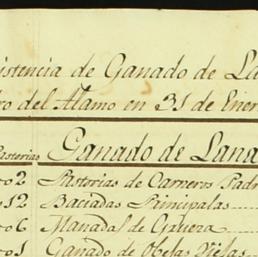 istencia de Ganado de La
ro del Alamo en 31 de Ener
Pastorias Ganado de Lana
2 Pastorias de Carneros Padr
12 Baciadas Principales
6 Manadas de
1 Ganado de Obejas Viejas